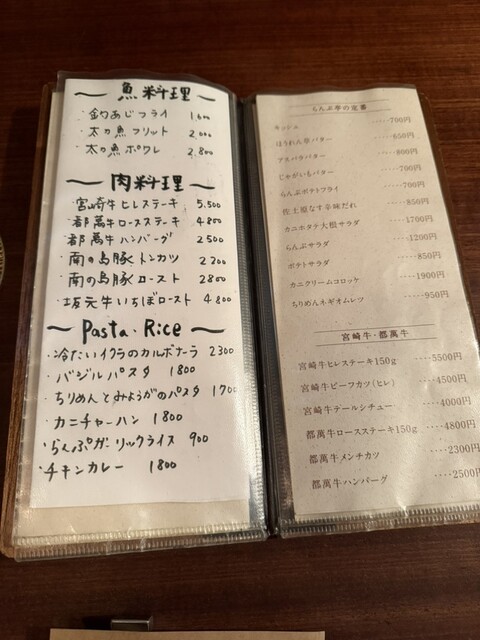 〜 魚料理 〜
・釣あじフライ 1600
・太刀魚フリット 2000
・太刀魚ポワレ 2,800
〜 肉料理 〜
・宮崎牛ヒレステーキ 5,500
・都萬牛ロースステーキ 4,800
・都萬牛ハンバーグ 2500
・南の島豚トンカツ 2200
・南の島豚ロースト 2800
・坂元牛いちぼロースト 4,800
〜 Pasta・Rice 〜
・冷たいイクラのカルボナーラ 2300
・バジルパスタ 1800
・ちりめんとみょうがのパスタ 1700
・カニチャーハン 1800
・らんぷガーリックライス 900
・チキンカレー 1800
らんぷ亭の定番
キッシュ ‥‥‥700円
ほうれん草バター ‥‥‥650円
アスパラバター ‥‥‥800円
じゃがいもバター ‥‥‥700円
らんぷポテトフライ ‥‥‥700円
佐土原なす辛味だれ ‥‥‥850円
カニホタテ大根サラダ ‥‥‥1700円
らんぷサラダ ‥‥‥1200円
ポテトサラダ ‥‥‥850円
カニクリームコロッケ ‥‥‥1900円
ちりめんネギオムレツ ‥‥‥950円
宮崎牛・都萬牛
宮崎牛ヒレステーキ150g ‥‥5500円
宮崎牛ビーフカツ(ヒレ) ‥‥4500円
宮崎牛テールシチュー ‥‥4000円
都萬牛ロースステーキ150g ‥‥4800円
都萬牛メンチカツ ‥‥2300円
都萬牛ハンバーグ ‥‥2500円